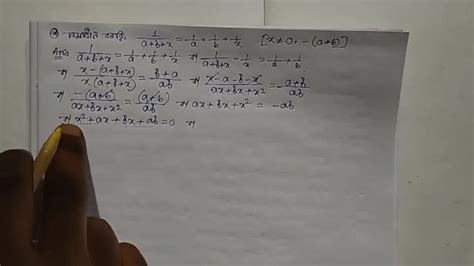 সমাধান করি, 1/(a+b+x) = 1/a + 1/b + 1/x [x≠0, -(a+b)]
Ans 1/(a+b+x) = 1/a + 1/b + 1/x ⇒ 1/(a+b+x) - 1/x = 1/a + 1/b
⇒ (x-(a+b+x))/(x(a+b+x)) = (b+a)/ab ⇒ (x-a-b-x)/(ax+bx+x²) = (a+b)/ab
⇒ -(a+b)/(ax+bx+x²) = (a+b)/ab ⇒ ax+bx+x² = -ab
⇒ x²+ax+bx+ab=0 ⇒